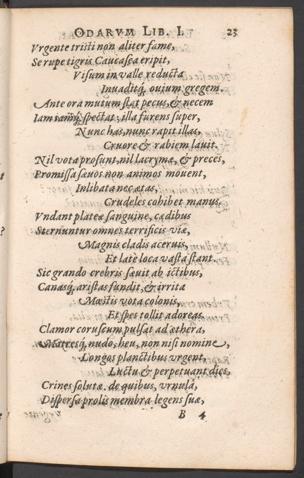 ODARVM LIB. I. 23
Vrgente tristi non aliter fame,
Se rupe tigris Caucasea eripit,
Visum in valle reducta
Inuaditq́, ouium gregem.
Ante ora mutum stat pecus, & necem
Iam iamq́ spectat, illa furens super,
Nunc has, nunc rapit illas,
Cruore & rabiem lauit.
Nil vota prosunt, nil lacrymæ, & preces,
Promissa sæuos non animos mouent,
Inlibata nec ætas,
Crudeles cohibet manus.
Vndant plateæ sanguine, cædibus
Sternuntur omnes terrificis viæ,
Magnis cladis aceruis,
Et latè loca vasta stant.
Sic grando crebris sæuit ab ictibus,
Canasq́, aristas fundit, & irrita
Mæstis vota colonis,
Et spes tollit adoreas.
Clamor coruscum pulsat ad æthera,
Matresq́, nudo, heu, non nisi nomine,
Longos planctibus vrgent
Luctu & perpetuant dies,
Crines solutæ. de quibus, vrnula,
Dispersa prolis membra legens suæ,
B 4